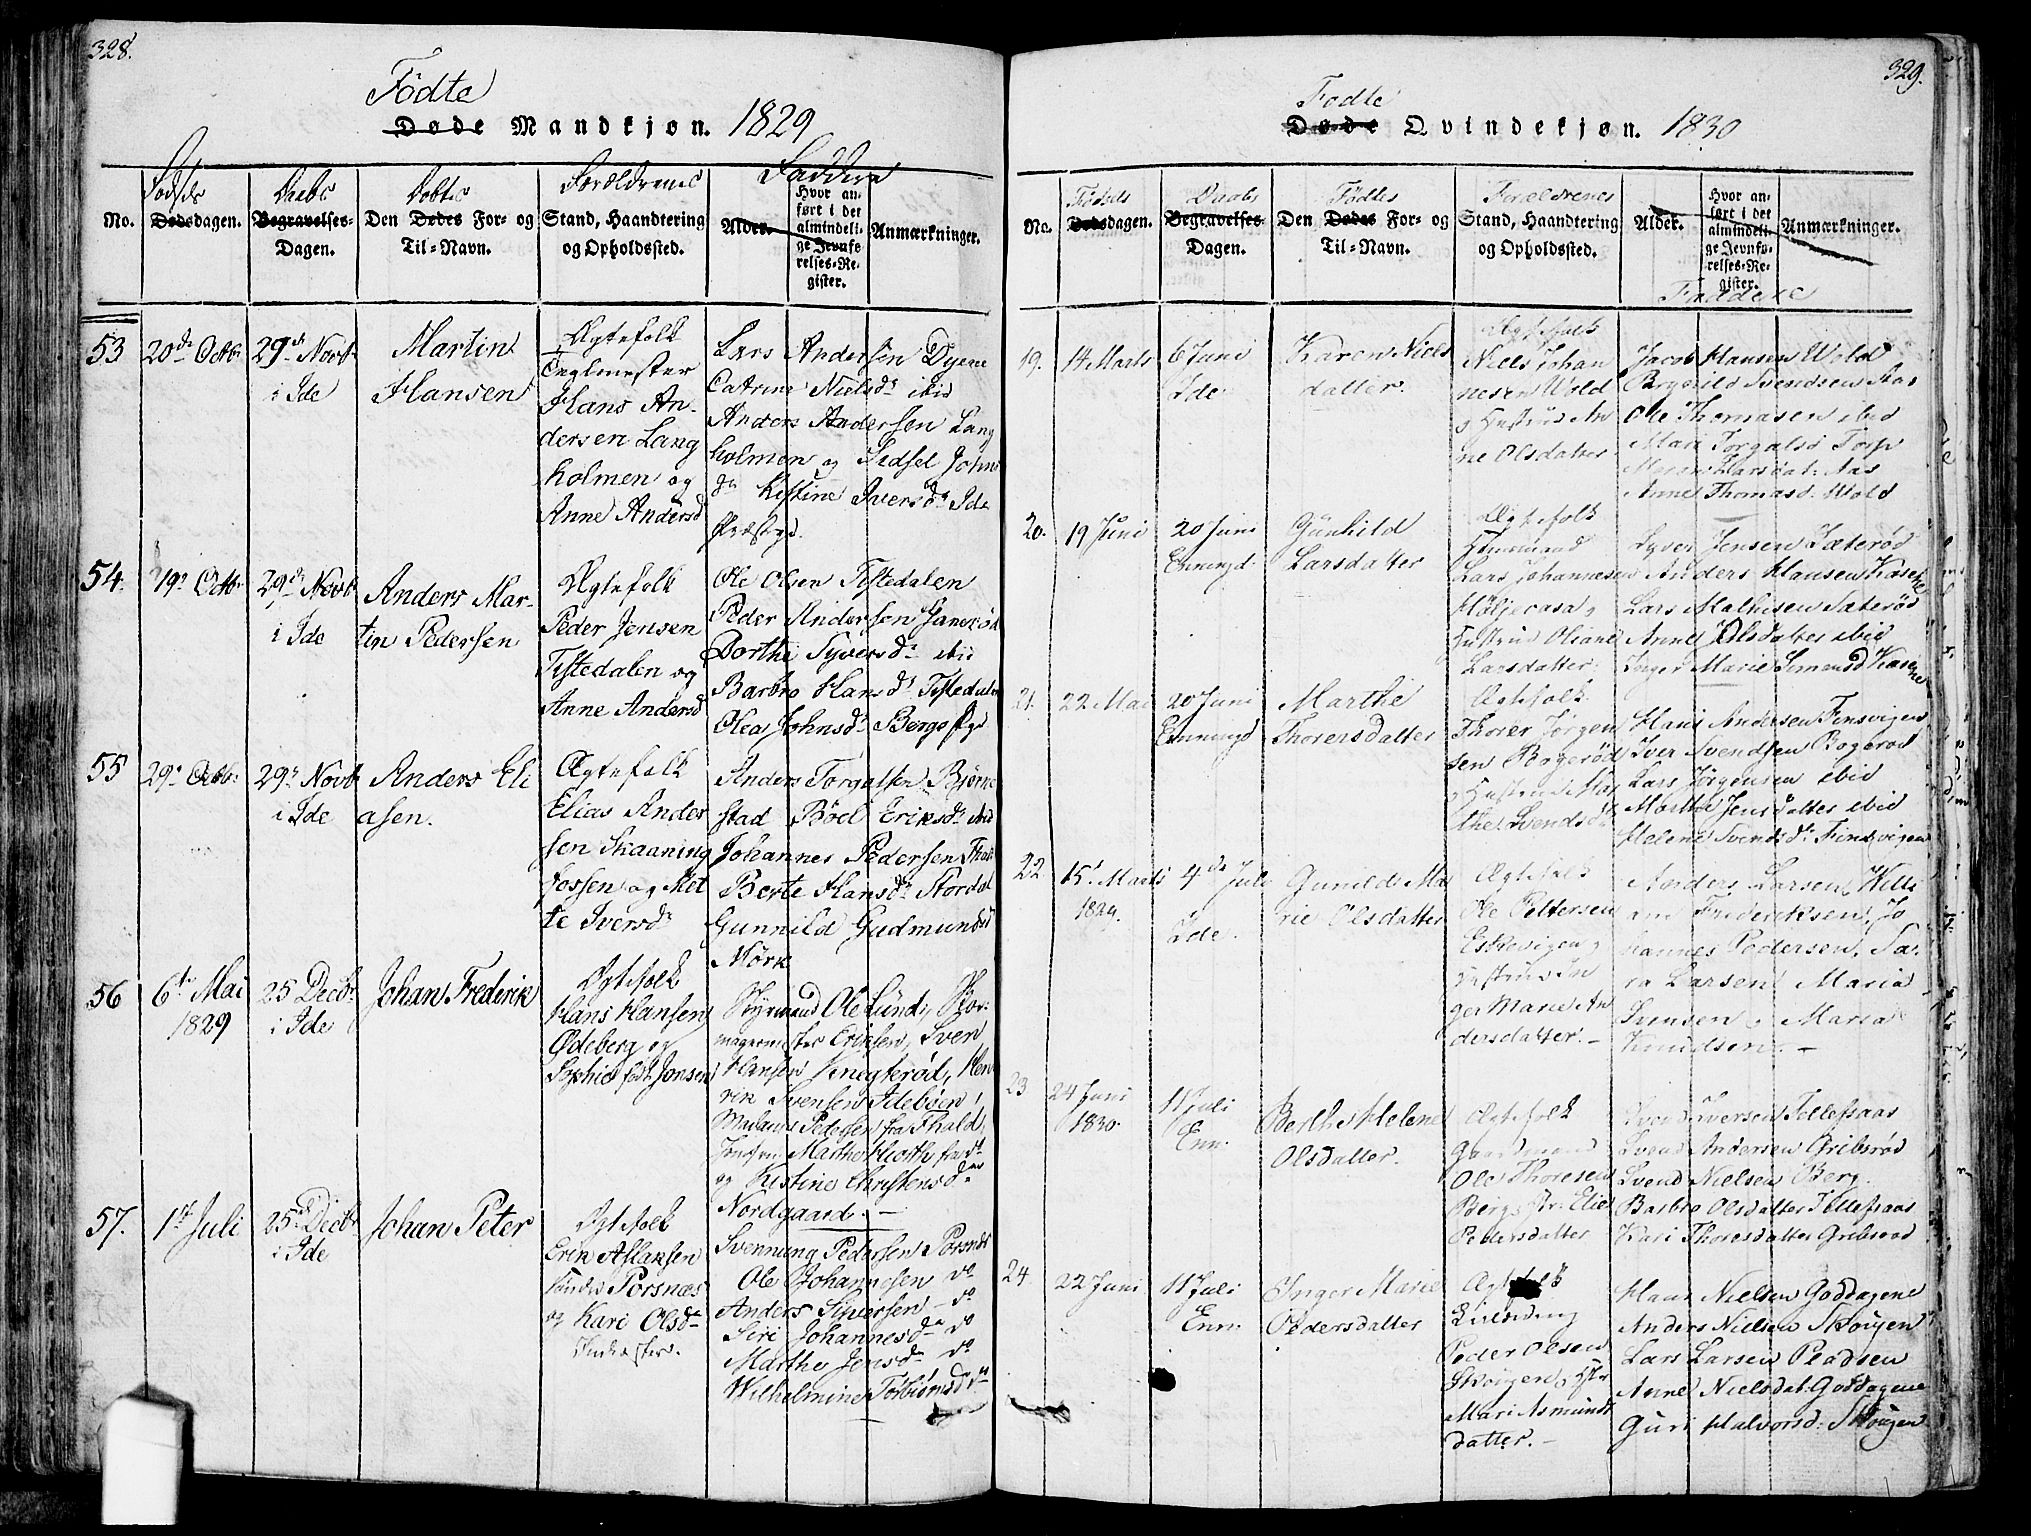 328.
Födte
Døde Mandkjøn. 1829
Fødsels Daabs Døbtes Forældrenes Faddere
No. Dødsdagen. Begravelses-Dagen. Den Dødes For- og Til-Navn. Stand, Haandtering og Opholdssted. Alder. Hvor anført i det almindelige Jevnførelses-Register. Anmærkninger.
53 20de Octbr 29de Novbr i Ide
Martin
Hansen
Ægtefolk
Teglmester
Hans An-
dersen Lang
holmen og
Anne Andersd
Lars Andersen Dyrene
Catrine Nielsdr ibid
Anders Andersen Lang
holmen og Sidsel Johns
dr Kistine Iversdr Ide
Præstegd.
54. 19de Octbr 29de Novbr i Ide
Anders Mar-
tin Pedersen
Ægtefolk
Peder Jensen
Tistedalen og
Anne Andersd
Ole Olsen Tistedalen
Peder Andersen
Dorthe Syversdr ibid
Barbro Hansdr Tistedalen
Olea Johnsdr Berge
55 29de Octbr 29de Novb i Ide
Anders Eli
asen.
Ægtefolk
Elias Ander
sen Skaaning
fossen og Met
te Iversdr
Anders Torgalsen Bjørne
stad Böel Eriksdr ibid
Johannes Pedersen
Berte Hansdr Stordal
Gunnild Gudmundsd
Mörk
56 6te Mai 1829 25 Decbr i Ide
Johan Frederik
Ægtefolk
Hans Hansen
Ødeberg og
Sophie født Jonsen
Styrmand Ole Lund, Skor-
magermester Eriksen, Sven
Hansen Knegterød, Hen
rik Svensen Idebøen,
Madame Pedersen fra Fhald,
Jomfru Marthe Hiorth
og Kistine Christensdr
Nordgaard. —
57. 1ste Juli 25de Decbr i Ide
Johan Peter
Ægtefolk
Erik Aslaksen
Porsnæs
og Kari Olsdr
Svennung Pedersen Porsnæs
Ole Johannesen do
Anders Siversen — do
Siri Johannesdr do
Marthe Jensdr do
Wilhelmine Torbiörnsd do
329.
Fødte
Døde Qvindekjøn. 1830
Fødsels Daabs Födtes Forældrenes
No. Dødsdagen. Begravelses-Dagen. Den Dødes For- og Til-Navn. Stand, Haandtering og Opholdssted. Alder. Hvor anført i det almindelige Jevnførelses-Register. Anmærkninger.
Faddere
19. 14 Marts 6 Juni Ide
Karen Niels
datter.
Ægtefolk
Niels Johan
nesen Wold
og Hustrue An
ne Olsdatter
Jacob Hansen Wold
Borgild Svendsen Aas
Ole Thomasen ibid
Mari Torgalsd Torp
Maren Larsdat: Aas
Anne Thomasd: Wold
20. 19 Juni 20 Juni Enningd.
Günhild
Larsdatter
Ægtefolk
Huusmand
Lars Johannesen
Höljecasa og
Hustrue Oliane
Larsdatter.
Syver Jensen Sæterød
Anders Hansen Kasene
Lars Mathisen Sæterød
Anne Olsdatter ibid
Inger Marie Simensd Kasene
21. 22 Mai 20 Juni Enningd
Marthe
Thorersdatter
Ægtefolk
Thorer Jörgen
sen Bogerød
og Hustrue Mar
the Svendsdr
Hans Andersen Finsvigen
Iver Svendsen Bogerød
Lars Jörgensen ibid
Marthe Jensdatter ibid
Helene Svendsdr Finsvigen
22 15de Marts 1829. 4de Juli Ide.
Gunild Ma
rie Olsdatter
Ægtefolk
Ole Pettersen
Eskevigen og
Hustrue In
ger Marie An
dersdatter. —
Anders Larsen, Willi
am Frederiksen, Jo
hannes Pedersen, Sa-
ra Larsen Maria
Svensen og Maria
Knudsen. —
23 24 Juni 1830. 11 Juli Enn.
Berthe Helene
Olsdatter.
Ægtefolk
Gaardmand
Ole Thoresen
Berg og Hr. Elie
Pedersdatter
Svend Iversen Tollefsaas
Svend Andersen Gribsrød
Svend Nielsen Berg.
Barbro Olsdatter Tollefsaas
Kari Thoresdatter Gribsrød
24. 22 Juni 11 Juli Enn.
Inger Marie
Pedersdatter
Ægtefolk
Peder Olsen
Skougen og Hstr
Mari Asmunds
datter. —
Hans Nielsen Goddagene
Anders Nielsen Skougen
Lars Larsen Pladsen
Anne Nielsdat: Goddagene
Guri Halvorsd: Skougen